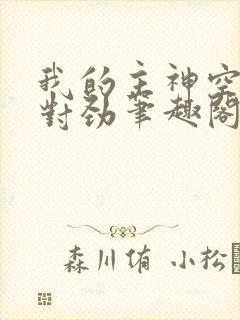 我的主神空
對勁筆趣閣
森川侑 小松